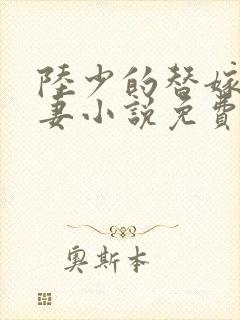 陸少的替嫁
妻小說免費
奧斯本